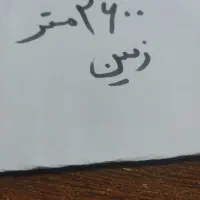 ۲۶۰۰ متر
زمین